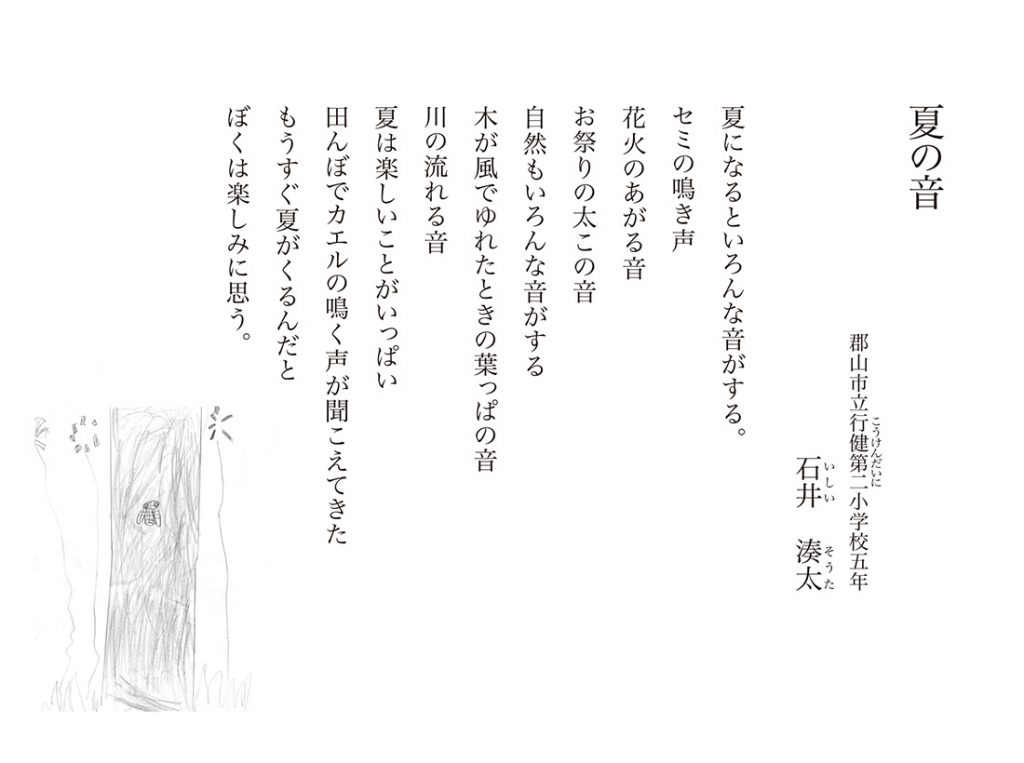 夏の音
郡山市立行健第二小学校五年
こうけんだいに
石井　湊太
いしい　そうた
夏になるといろんな音がする。
セミの鳴き声
花火のあがる音
お祭りの太この音
自然もいろんな音がする
木が風でゆれたときの葉っぱの音
川の流れる音
夏は楽しいことがいっぱい
田んぼでカエルの鳴く声が聞こえてきた
もうすぐ夏がくるんだと
ぼくは楽しみに思う。